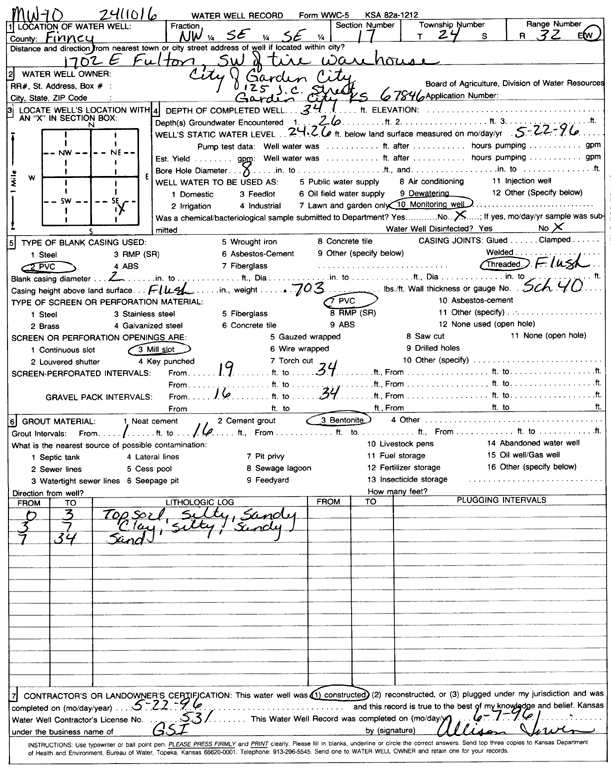 MW-70 2411016 WATER WELL RECORD Form WWC-5 KSA 82a-1212
1 LOCATION OF WATER WELL: Fraction Section Number Township Number Range Number
County: Finney NW ¼ SE ¼ SE ¼ 17 T 24 S R 32 E/W
Distance and direction from nearest town or city street address of well if located within city?
1702 E Fulton, SW of tire warehouse
2 WATER WELL OWNER: City of Garden City
RR#, St. Address, Box #: 125 J.C. Street Board of Agriculture, Division of Water Resources
City, State, ZIP Code Garden City KS 67846 Application Number:
3 LOCATE WELL'S LOCATION WITH AN "X" IN SECTION BOX:
N
NW NE
W E
SW SE X
S
1 Mile
4 DEPTH OF COMPLETED WELL 34 ft. ELEVATION:
Depth(s) Groundwater Encountered 1. 26 ft. 2. ft. 3. ft.
WELL'S STATIC WATER LEVEL 24.26 ft. below land surface measured on mo/day/yr 5-22-96
Pump test data: Well water was ft. after hours pumping gpm
Est. Yield gpm: Well water was ft. after hours pumping gpm
Bore Hole Diameter 8 in. to ft., and in. to ft.
WELL WATER TO BE USED AS: 5 Public water supply 8 Air conditioning 11 Injection well
1 Domestic 3 Feedlot 6 Oil field water supply 9 Dewatering 12 Other (Specify below)
2 Irrigation 4 Industrial 7 Lawn and garden only 10 Monitoring well
Was a chemical/bacteriological sample submitted to Department? Yes No X; If yes, mo/day/yr sample was submitted
Water Well Disinfected? Yes No X
5 TYPE OF BLANK CASING USED: 5 Wrought iron 8 Concrete tile CASING JOINTS: Glued Clamped
1 Steel 3 RMP (SR) 6 Asbestos-Cement 9 Other (specify below) Welded
2 PVC 4 ABS 7 Fiberglass Threaded Flush
Blank casing diameter 2 in. to ft., Dia in. to ft., Dia in. to ft.
Casing height above land surface Flush in., weight .703 lbs./ft. Wall thickness or gauge No. Sch 40
TYPE OF SCREEN OR PERFORATION MATERIAL: 7 PVC 10 Asbestos-cement
1 Steel 3 Stainless steel 5 Fiberglass 8 RMP (SR) 11 Other (specify)
2 Brass 4 Galvanized steel 6 Concrete tile 9 ABS 12 None used (open hole)
SCREEN OR PERFORATION OPENINGS ARE: 5 Gauzed wrapped 8 Saw cut 11 None (open hole)
1 Continuous slot 3 Mill slot 6 Wire wrapped 9 Drilled holes
2 Louvered shutter 4 Key punched 7 Torch cut 10 Other (specify)
SCREEN-PERFORATED INTERVALS: From 19 ft. to 34 ft., From ft. to ft.
From ft. to ft., From ft. to ft.
GRAVEL PACK INTERVALS: From 16 ft. to 34 ft., From ft. to ft.
From ft. to ft., From ft. to ft.
6 GROUT MATERIAL: 1 Neat cement 2 Cement grout 3 Bentonite 4 Other
Grout Intervals: From 1 ft. to 16 ft., From ft. to ft., From ft. to ft.
What is the nearest source of possible contamination: 10 Livestock pens 14 Abandoned water well
1 Septic tank 4 Lateral lines 7 Pit privy 11 Fuel storage 15 Oil well/Gas well
2 Sewer lines 5 Cess pool 8 Sewage lagoon 12 Fertilizer storage 16 Other (specify below)
3 Watertight sewer lines 6 Seepage pit 9 Feedyard 13 Insecticide storage
Direction from well? How many feet?
FROM TO LITHOLOGIC LOG FROM TO PLUGGING INTERVALS
0 3 Topsoil, Silty, Sandy
3 7 Clay, Silty, Sandy
7 34 Sand
7 CONTRACTOR'S OR LANDOWNER'S CERTIFICATION: This water well was (1) constructed, (2) reconstructed, or (3) plugged under my jurisdiction and was
completed on (mo/day/year) 5-22-96 and this record is true to the best of my knowledge and belief. Kansas
Water Well Contractor's License No. 531 This Water Well Record was completed on (mo/day/yr) 6-7-96
under the business name of GSI by (signature) Allison Irwin
INSTRUCTIONS: Use typewriter or ball point pen. PLEASE PRESS FIRMLY and PRINT clearly. Please fill in blanks, underline or circle the correct answers. Send top three copies to Kansas Department
of Health and Environment, Bureau of Water, Topeka, Kansas 66620-0001. Telephone: 913-296-5545. Send one to WATER WELL OWNER and retain one for your records.